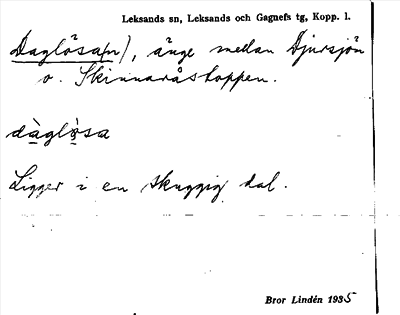 Leksands sn, Leksands och Gagnefs tg, Kopp. l.
Daglösa(n), änge mellan Djursjön
o. Skinnaråstoppen.
dàglò̱sa
Ligger i en skuggig dal.
Bror Lindén 1935